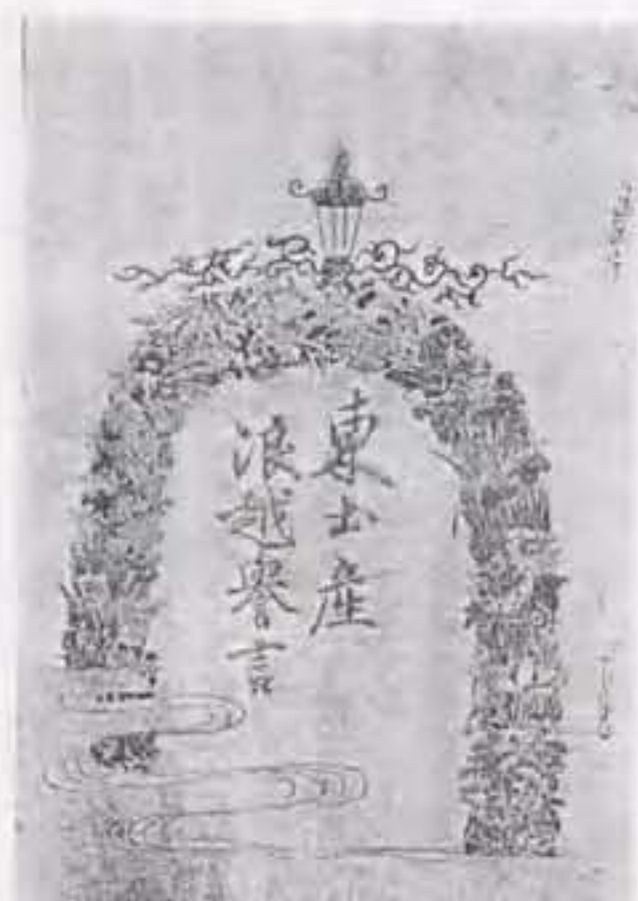 東土産
浪越誉言